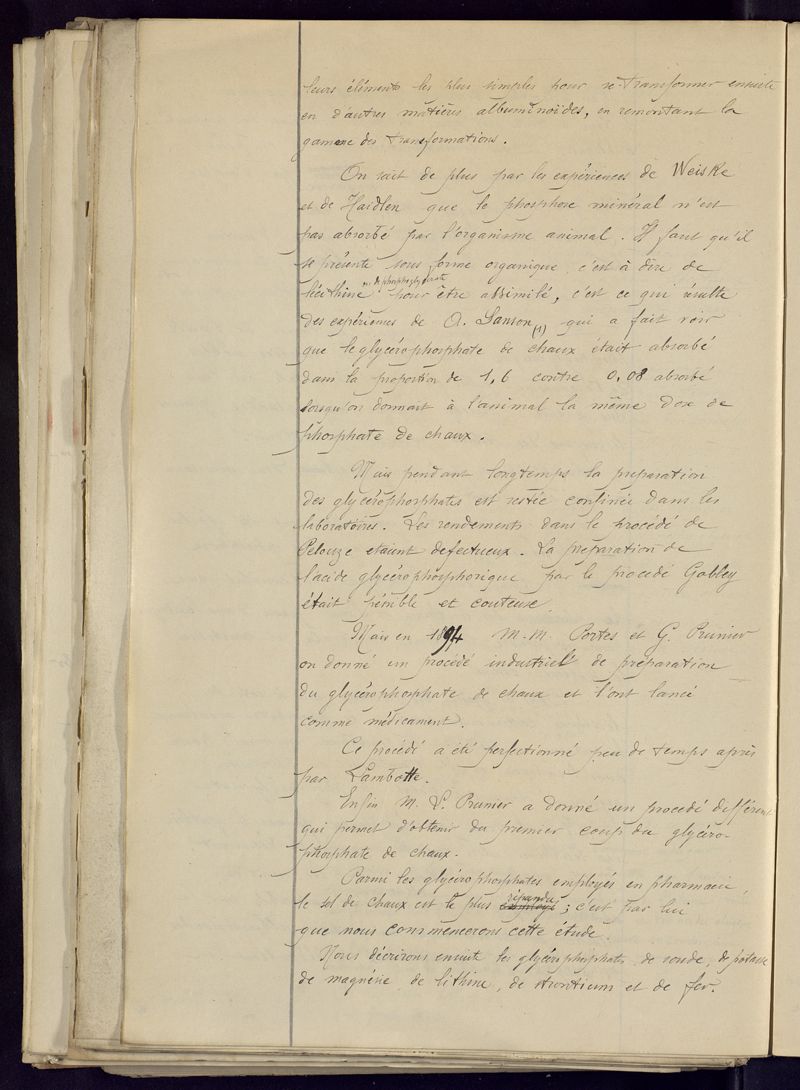 leurs éléments les plus simples pour se transformer ensuite
en d'autres matières albuminoïdes, en remontant la
gamme des transformations.
On sait de plus par les expériences de Weiske
et de Haidlen que le phosphore minéral n'est
pas absorbé par l'organisme animal. Il faut qu'il
se présente sous forme organique, c'est à dire de
lécithine ou de phosphoglycérate pour être assimilé, c'est ce qui résulte
des expériences de A. Sanson (1) qui a fait voir
que le glycérophosphate de chaux était absorbé
dans la proportion de 1,6 contre 0,08 absorbé
lorsqu'on donnait à l'animal la même dose de
phosphate de chaux.
Mais pendant longtemps la preparation
des glycérophosphates est restée confinée dans les
laboratoires. Les rendements dans le procédé de
Pelouze etaient defectueux. La préparation de
l'acide glycérophosphorique par le procédé Gobley
était pénible et couteuse.
Mais en 1894 M.M. Portes et G. Prunier
on donné un procédé industriel de préparation
du glycérophosphate de chaux et l'ont lancé
comme médicament.
Ce procédé a été perfectionné peu de temps après
par Lambotte.
Enfin M. L. Prunier a donné un procédé différent
qui permet d'obtenir du premier coup du glycéro-
phosphate de chaux.
Parmi les glycérophosphates employés en pharmacie,
le sel de chaux est le plus employé répandu; c'est par lui
que nous commencerons cette étude.
Nous décrirons ensuite les glycérophosphates de soude, de potasse
de magnésie, de lithine, de strontium et de fer.